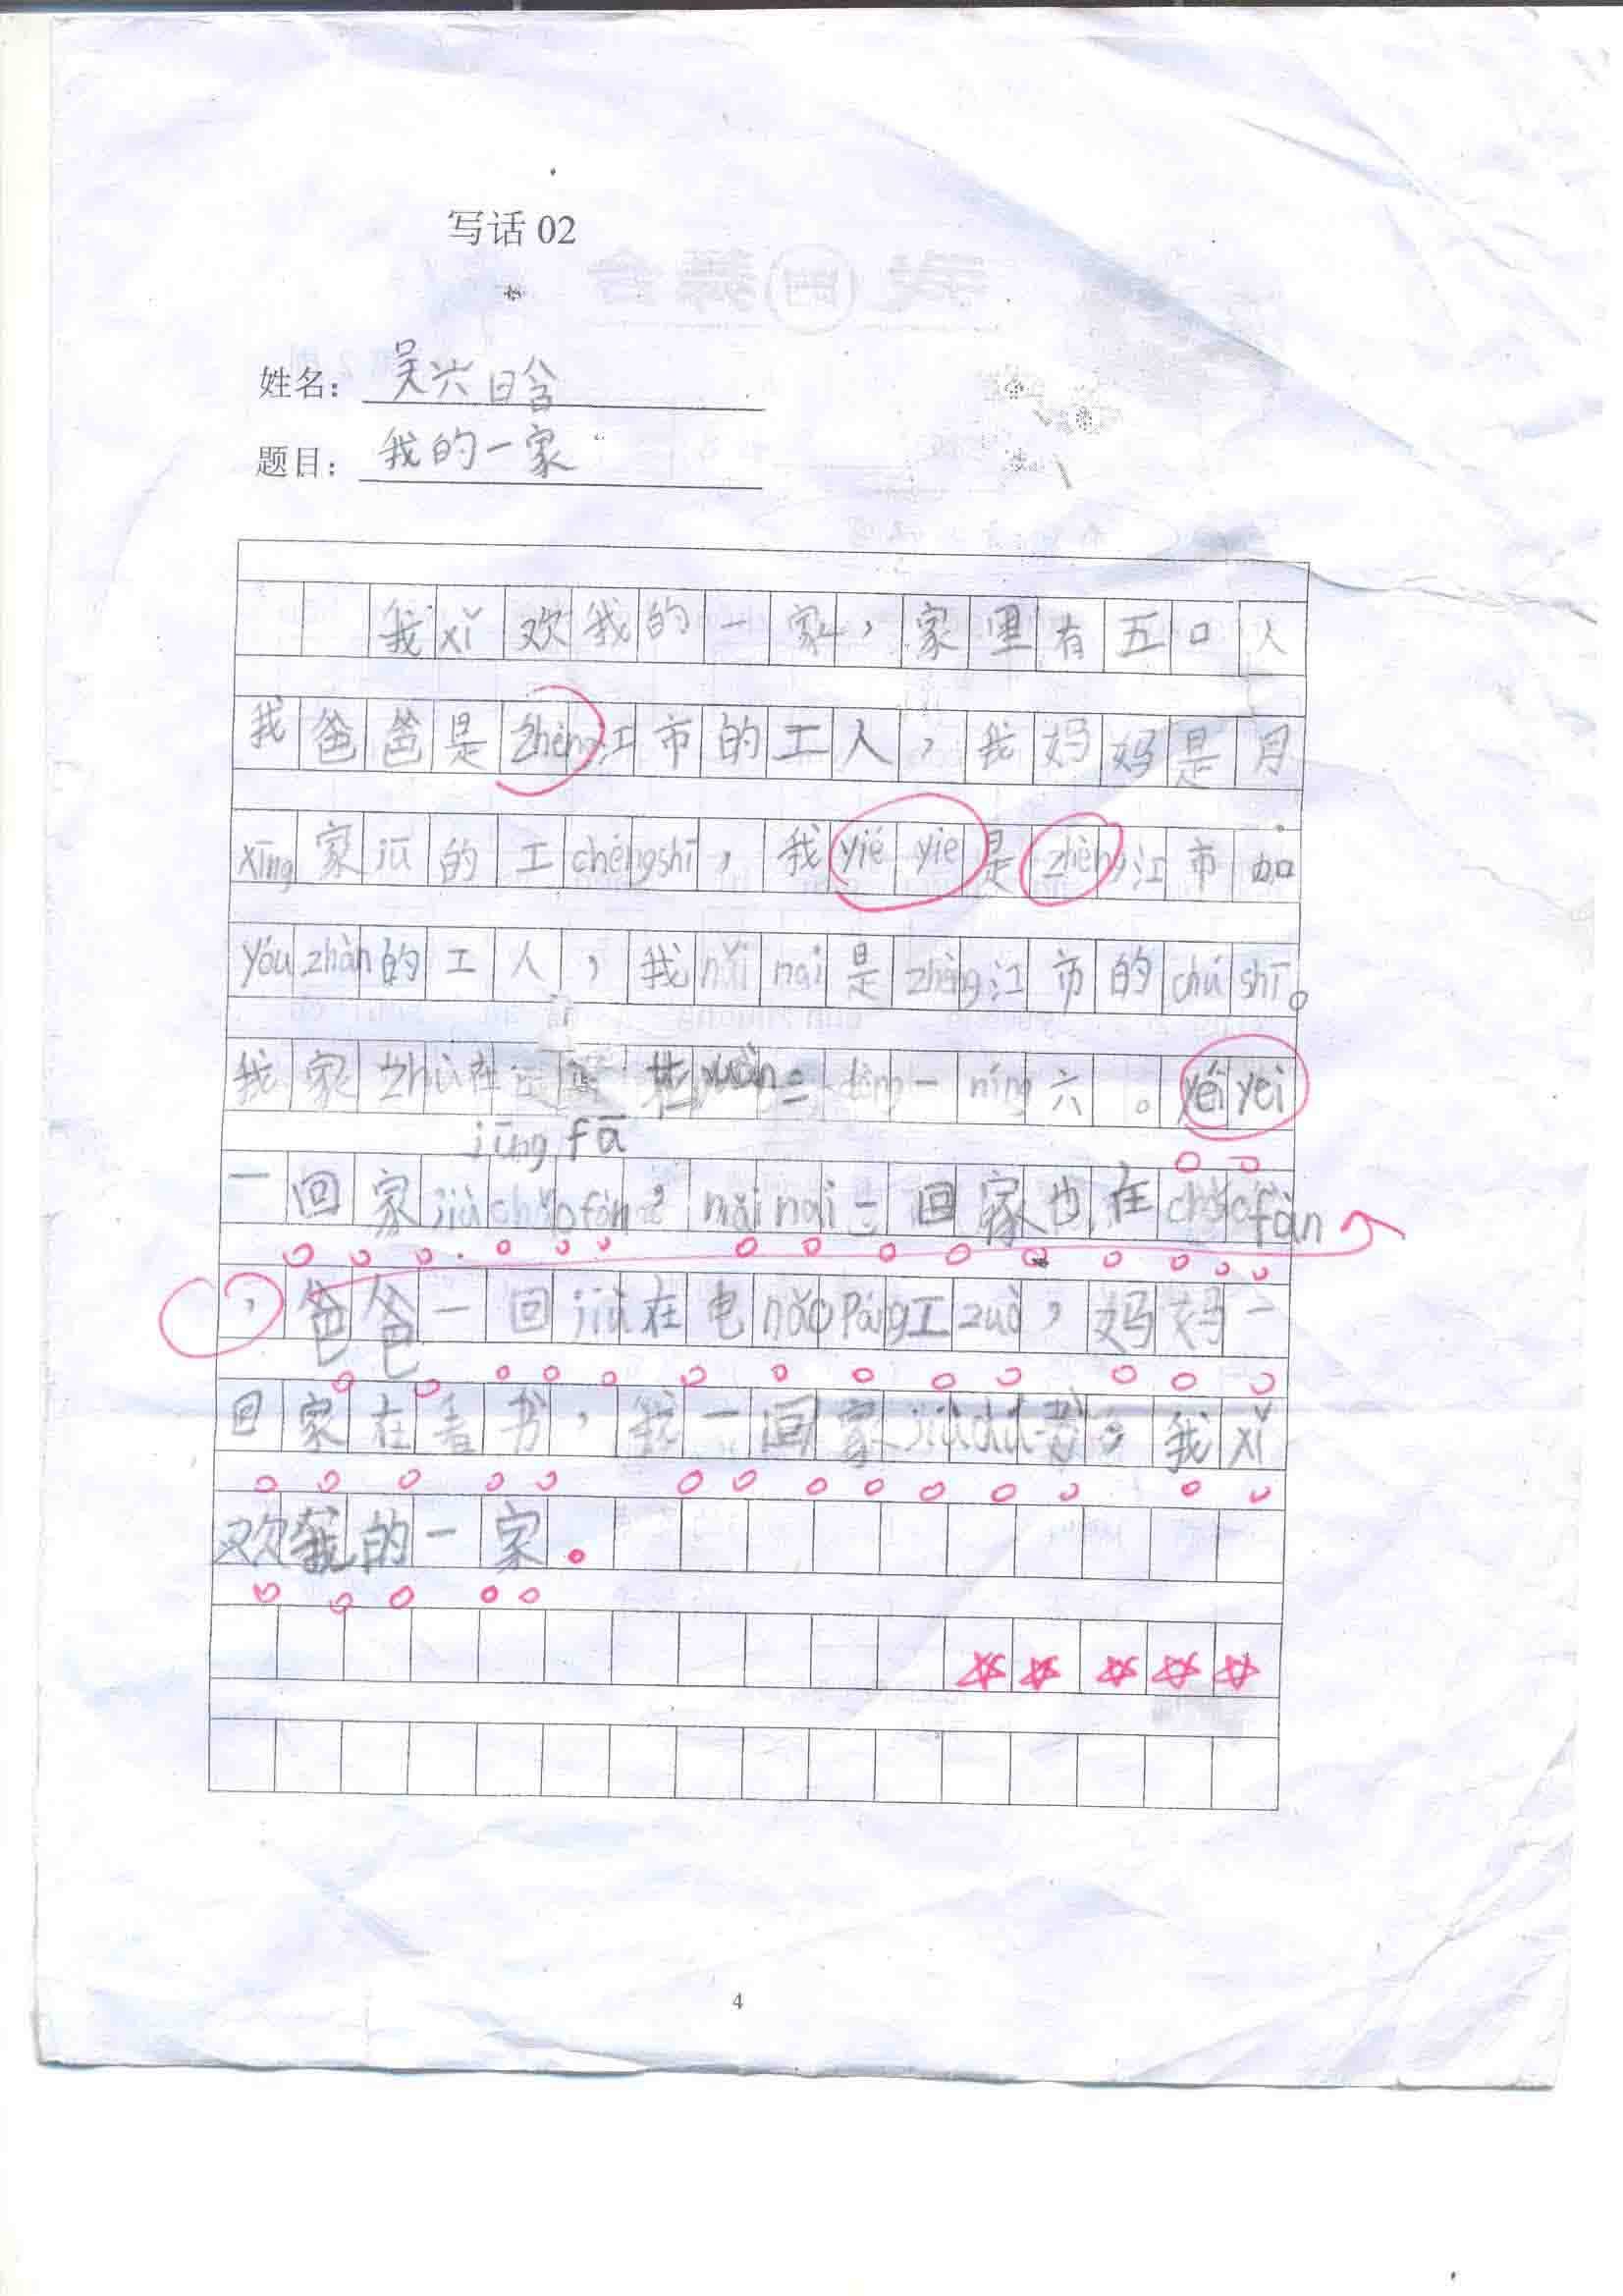 写话 02
姓名：吴六日含
题目：我的一家
我xǐ欢我的一家，家里有五口人
我爸爸是zhèng江市的工人，我妈妈是月
xīng家jū的工chéngshī，我yié yie是zhèng江市加
yóu zhàn的工人，我nǎi nai是zhèng江市的chú shī。
我家zhù在 二 一 níng六。yéi yei
jīng fā
一回家jiù chǎofàn，nǎi nai一回家也在chǎofàn
，爸爸一回jiā在电nǎo páng工zuò，妈妈一
回家在看书，我一回家jiù 书。我xǐ
欢我的一家。
4